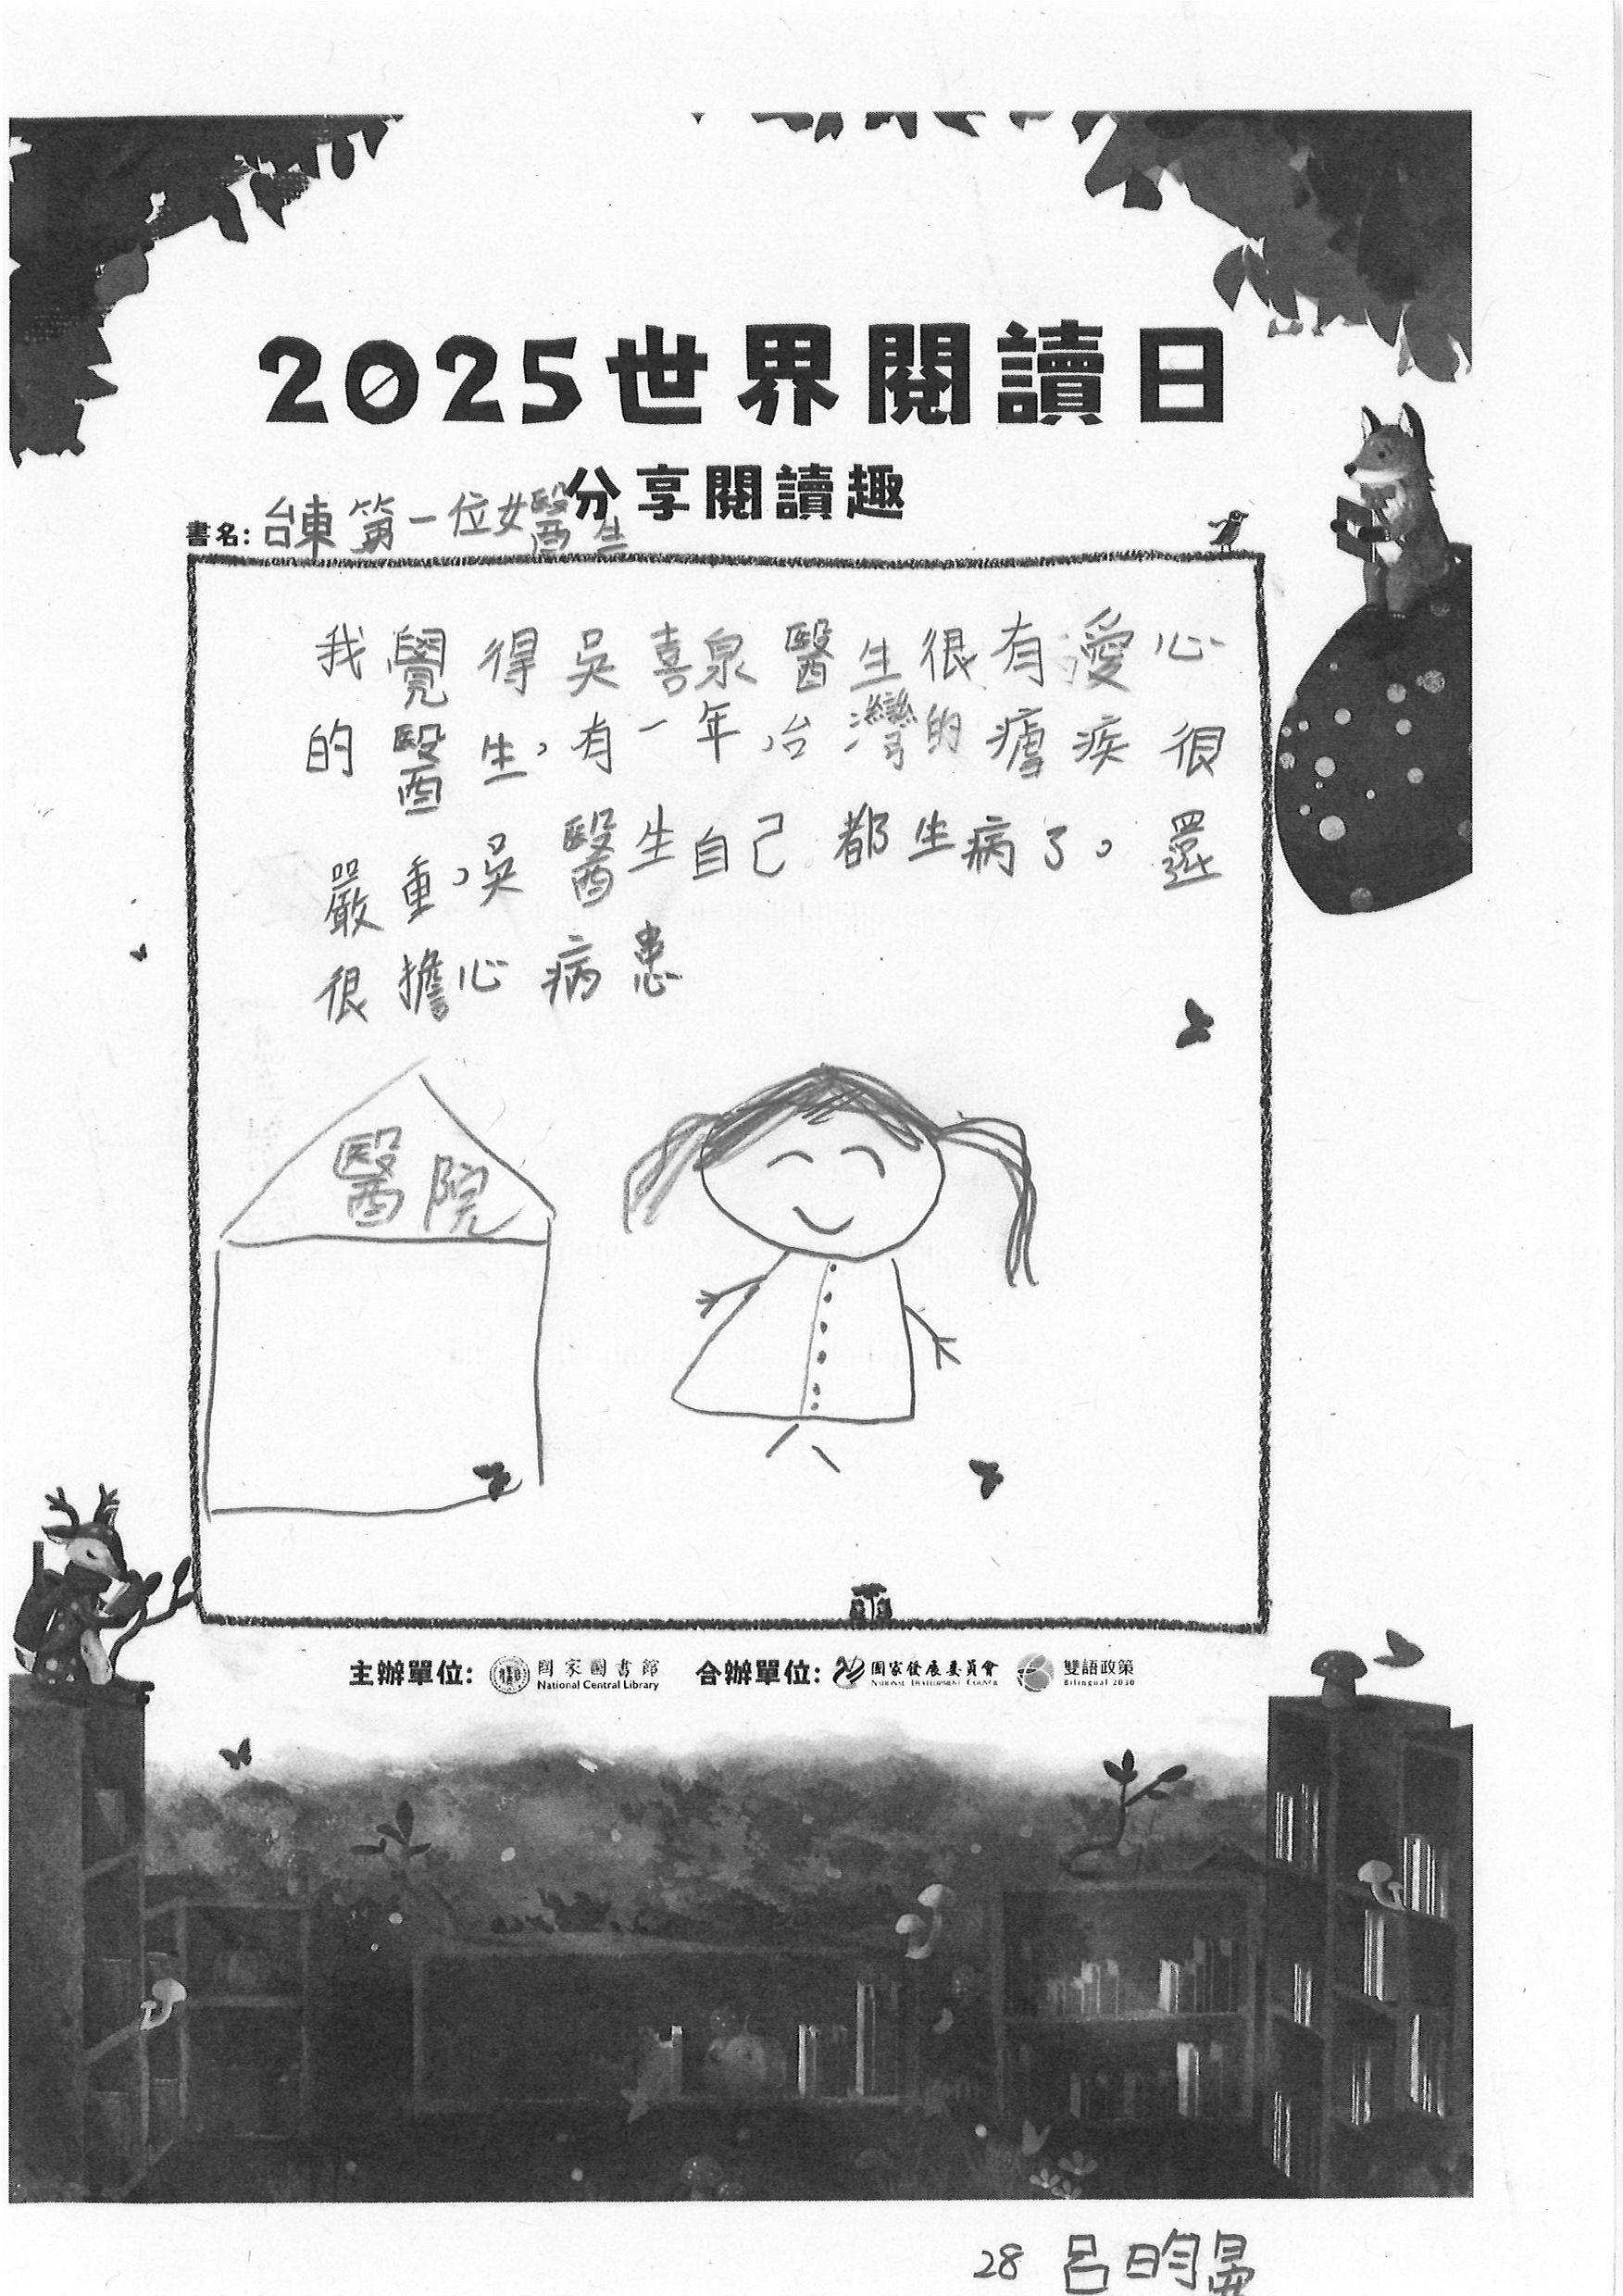 2025世界閱讀日
分享閱讀趣
書名: 台東第一位女醫生
我覺得吳喜泉醫生很有愛心
的醫生,有一年台灣的瘧疾很
嚴重,吳醫生自己都生病了。還
很擔心病患
醫院
主辦單位: 國家圖書館 National Central Library 合辦單位: 國家發展委員會 National Development Council 雙語政策 Bilingual 2030
28 呂昀